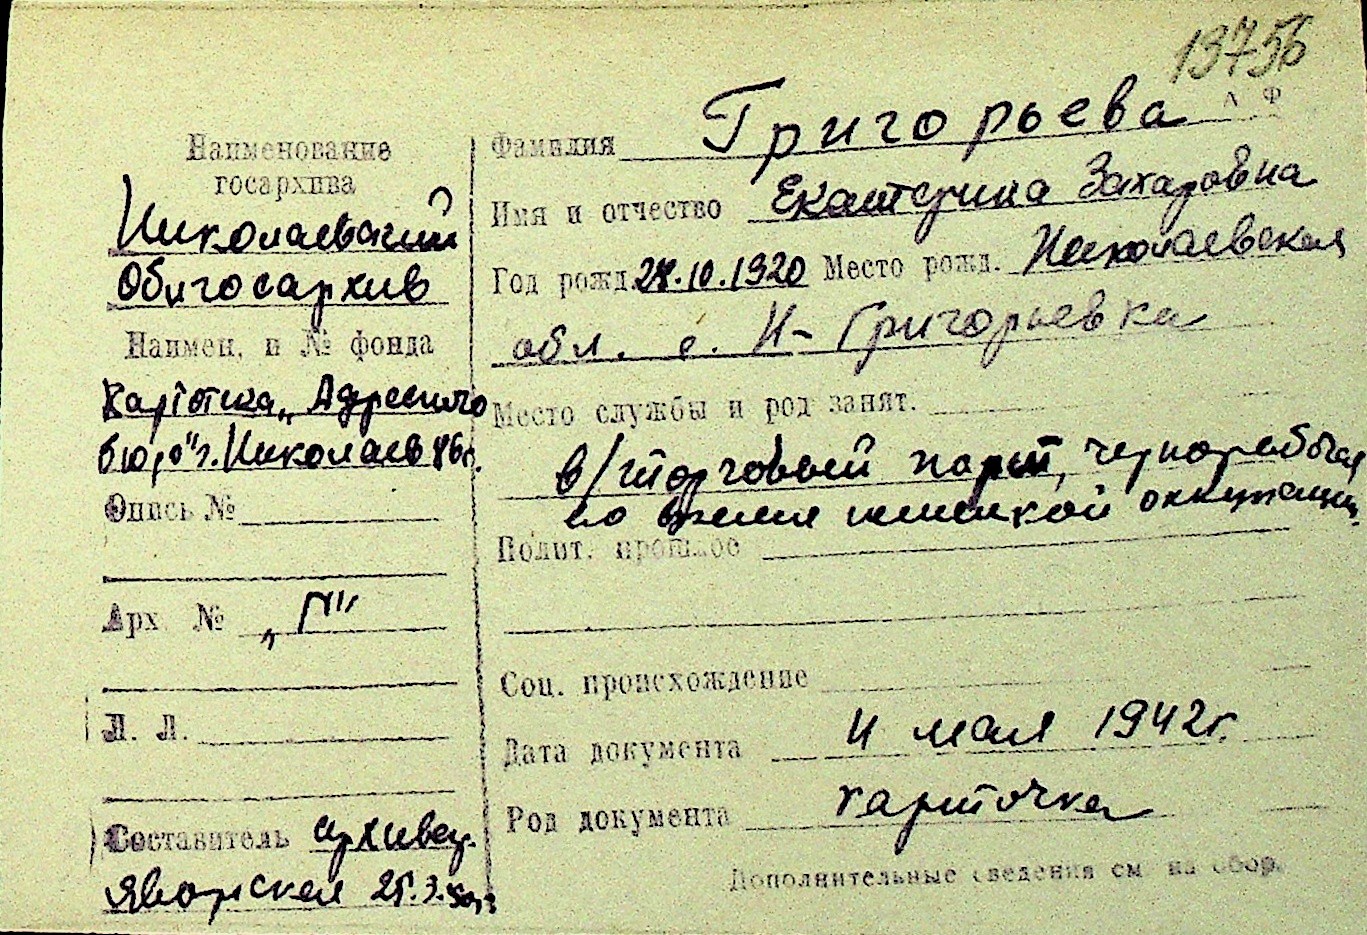 13756
Наименование
госархива
Николаевский
Облгосархив
Наимен. и № фонда
Картотка „Адресного
бюро" г. Николаев
Опись №
Арх № „Г"
Л. Л.
Составитель архивар.
Яворская 25.3.
Фамилия Григорьева
Имя и отчество Екатерина Захаровна
Год рожд. 24.10.1920 Место рожд. Николаевская
обл. с. Н-Григорьевка
Место службы и род занят.
в/торговый порт, чернорабочая
во время немецкой оккупации.
Полит. прошлое
Соц. происхождение
Дата документа 4 мая 1942 г.
Род документа карточка
Дополнительные сведения см на обор.